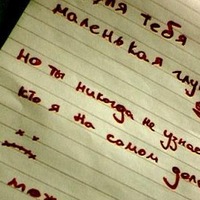 для тебя
маленькая глу
Но ты никогда не узнае
кто я на самом деле
мох